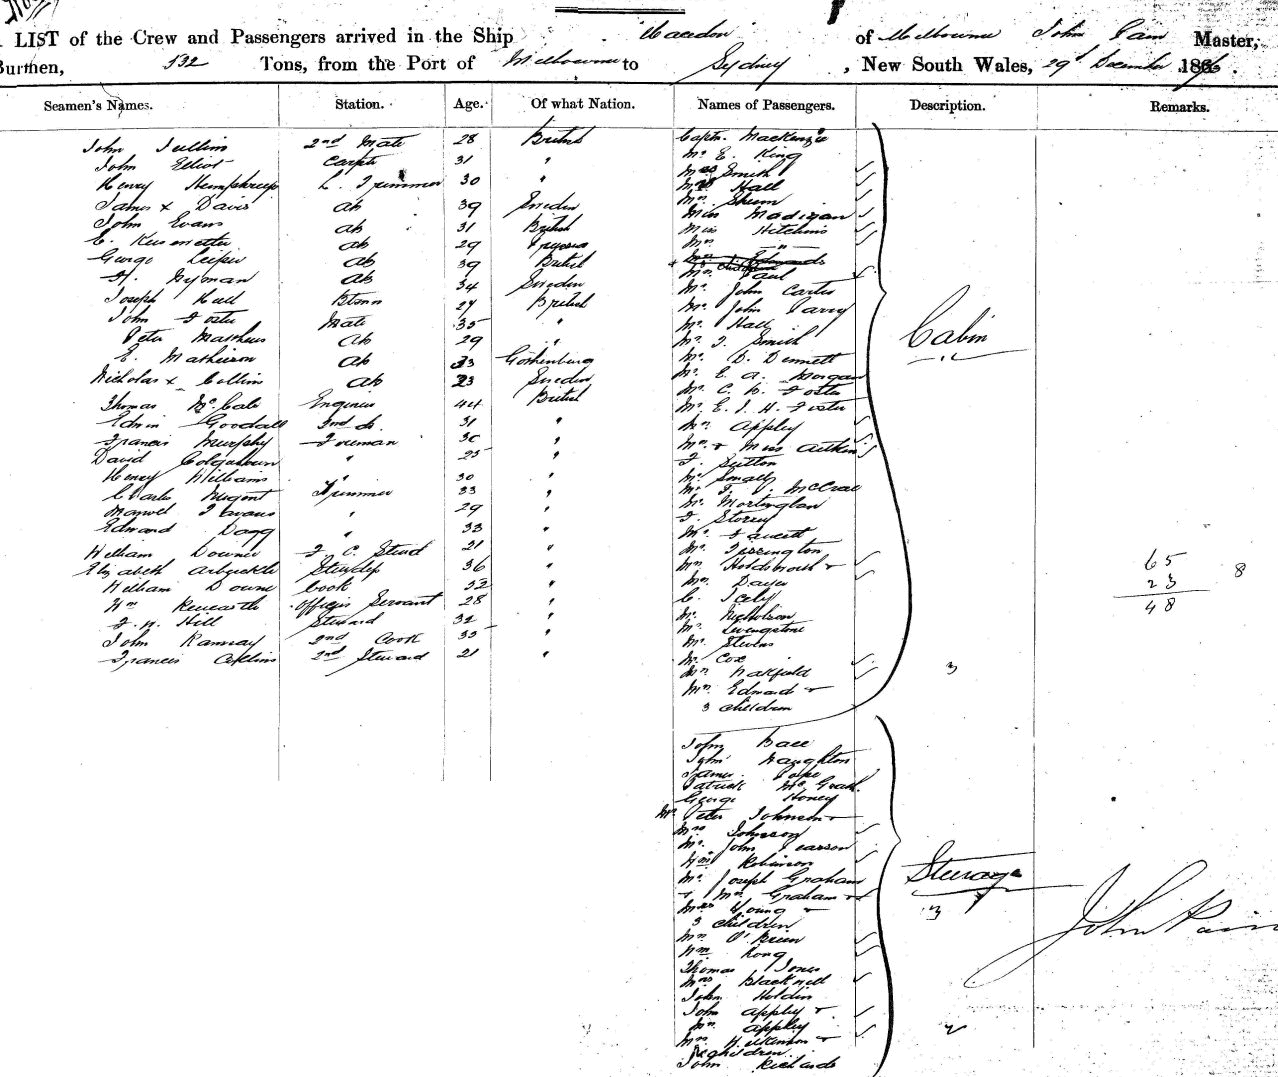 LIST of the Crew and Passengers arrived in the Ship Macedon of Melbourne John Cain Master,
Burthen, 532 Tons, from the Port of Melbourne to Sydney, New South Wales, 29th December 186
Seamen's Names. Station. Age. Of what Nation. Names of Passengers. Description. Remarks.
John Jullins 2nd Mate 28 British
John Elliot Carptr 31 "
Henry Humphreys L. Trimmer 30 "
James x Davis ab 39 Sweden
John Evans ab 31 British
E. ab 29
George Leiper ab 39 British
Nyman ab 34 Sweden
Joseph Hull Btmn 27 British
John Foster Mate 35 "
Peter Matthews ab 29 "
E. Mathieson ab 33 Gothenburg
Nicholas x Collins ab 23 Sweden
Thomas McCabe Engineer 44 British
Edwin Goodall 2nd do. 31 "
Francis Murphy Fireman 30 "
David Colquhoun " 25 "
Henry Williams " 30 "
Charles Nugent Trimmer 33 "
Manuel " 29 "
Edward Dagg " 33 "
William Downie F. C. Stewd 21 "
Elizabeth Arbuckle Stewdss 36 "
William Downe Cook 52 "
Wm Officers Servant 28 "
F. W. Hill Steward 32 "
John Ramsay 2nd Cook 33 "
Francis Collins 2nd Steward 21 "
Captn. MacKenzie
Mr E. King
Mrs Smith
Mrs Hall
Mrs Skeen
Miss Madigan
Miss Hitchins
Mrs — " —
Mrs Edwards
3 children
Mrs Paul
Mr. John Carter
Mr. John Parry
Mr. Hall
Mr. J. Smith
Mr. D. Dennett
Mr. E. A. Morgan
Mr. C. H. Foster
Mr. E. J. H. Foster
Mrs Appley
Mrs & Miss Aitkin
J. Sutton
Mr Small
Mr. F. J. McCrae
Mr. Mortinglan
J. Storey
Mr. Faucett
Mr. Tissington
Mrs Holdsworth
Mrs Dayes
C. Icely
Mr. Nicholson
Mr. Livingstone
Mr. Stevens
Mr Cox
Mrs Hatfield
Mrs Edwards
3 children
Cabin
3
65
23 8
48
John Ball
John Naughton
James Pope
Patrick McGrath
George Honey
Mr Peter Johnson
Mrs Johnson
Mr. John Pearson
Wm Robinson
Mr. Joseph Graham
& Mrs Graham
Mrs Young
3 children
Mrs O'Brien
Wm Kong
Thomas Jones
Mrs Blackwell
John Holdin
John Appley
Mrs Appley
Mrs H. Wilkinson
2 children
John Richards
Steerage
3
2
John Cain